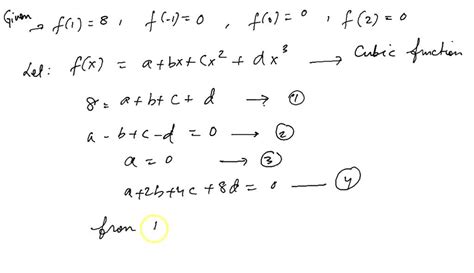 Given → f(1) = 8, f(-1) = 0, f(0) = 0, f(2) = 0
Let: f(x) = a+bx+cx²+dx³ → Cubic function
8 = a+b+c+d → ①
a-b+c-d = 0 → ②
a = 0 → ③
a+2b+4c+8d = 0 — ④
from 1